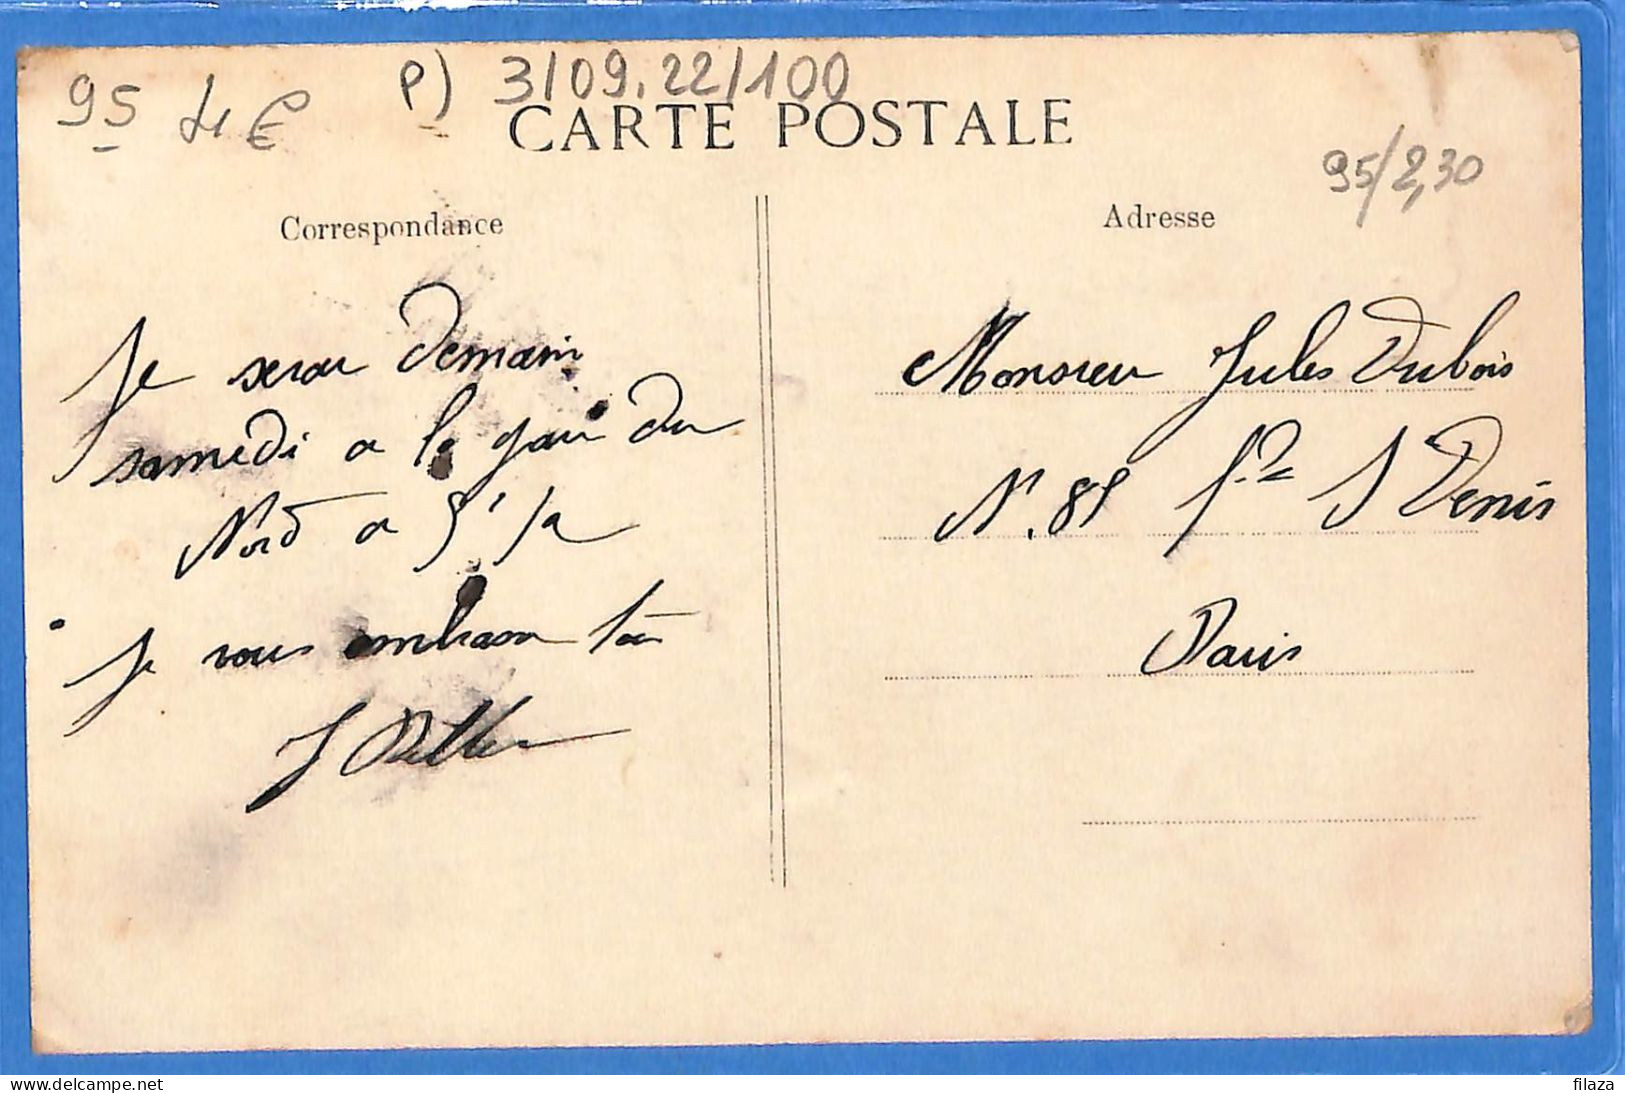 95 4€ P) 3/09.22/100
CARTE POSTALE
95/2,30
Correspondance
Je serai demain
samedi a la gare du
Nord a 5'
Je vous embrasse
J
Adresse
Monsieur Jules Dubois
N. 85 S Denis
Paris
delcampe.net
filaza